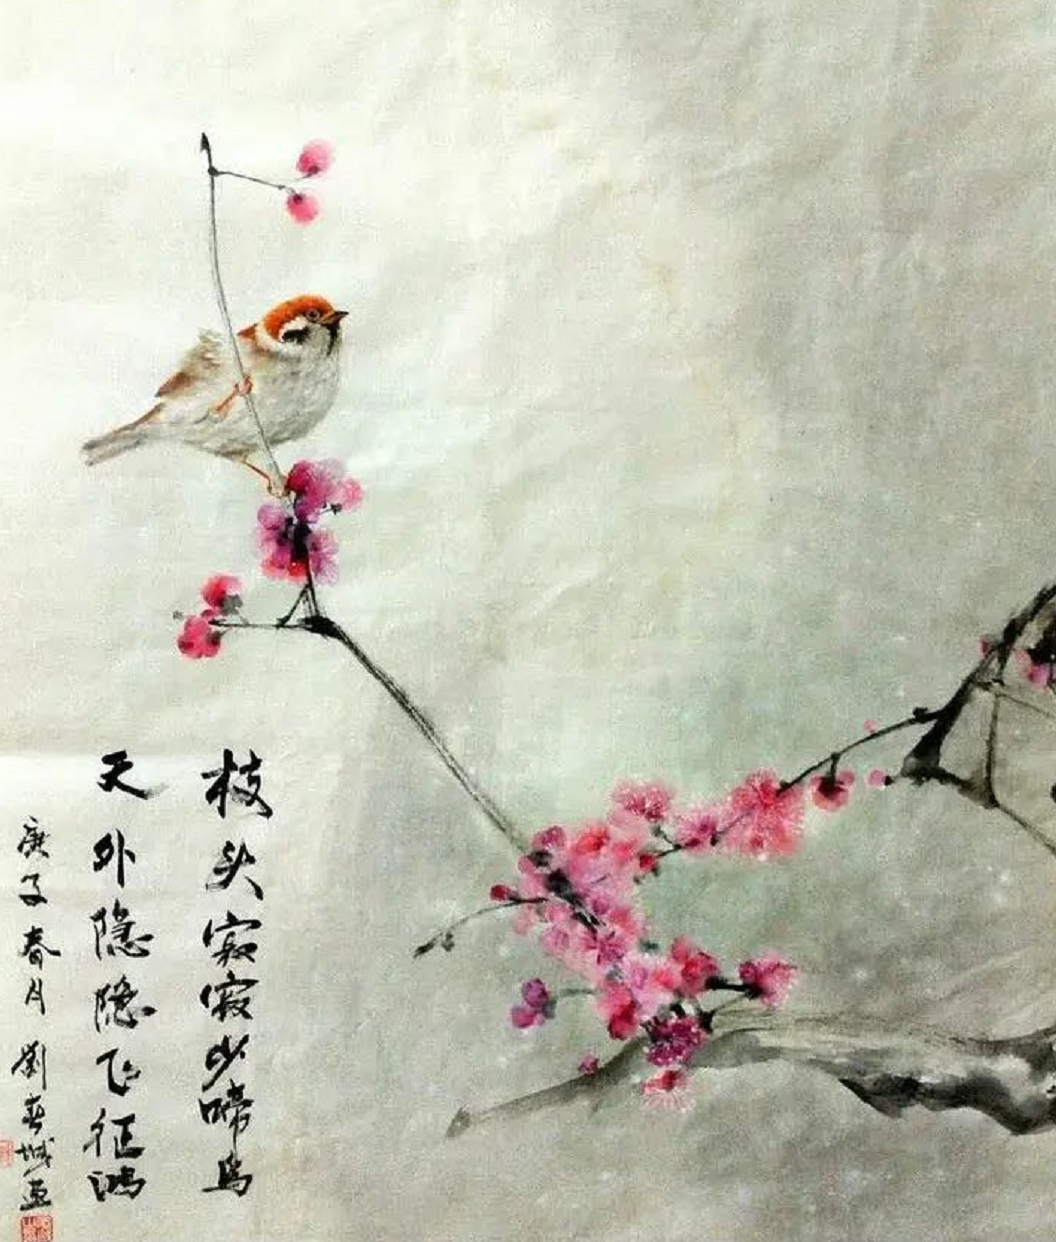 枝头寂寂少啼鸟
天外隐隐飞征鸿
庚子春月 劉春城画